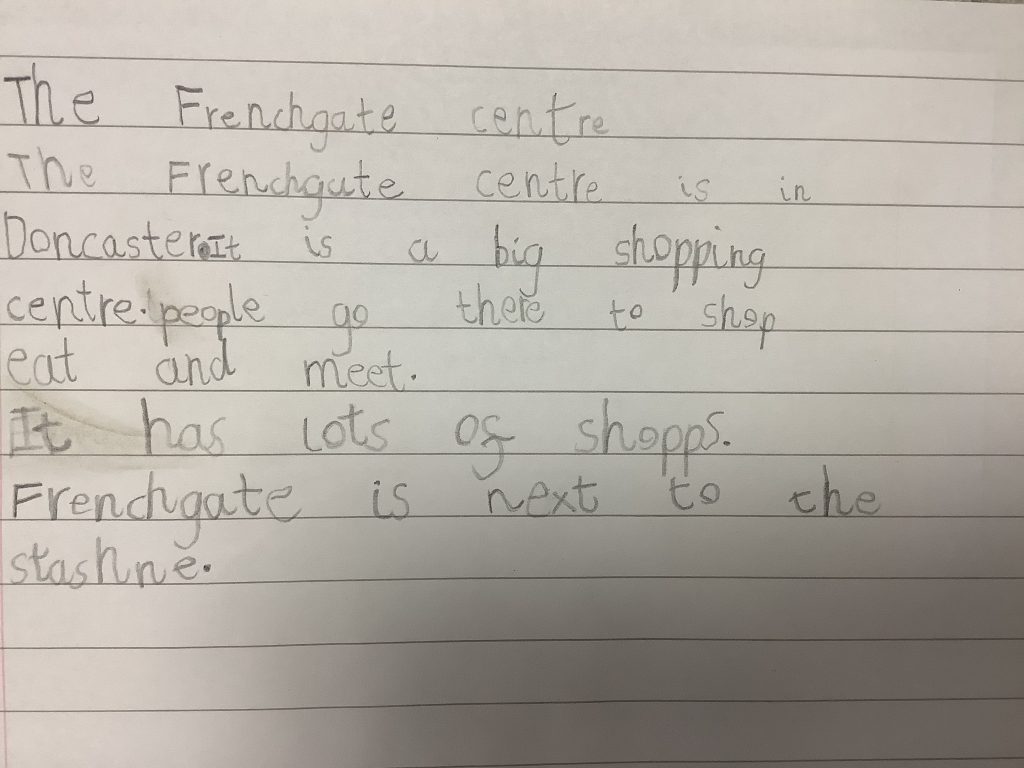 The Frenchgate centre
The Frenchgate centre is in
Doncaster.It is a big shopping
centre. people go there to shop
eat and meet.
It has lots of shopps.
Frenchgate is next to the
stashne.